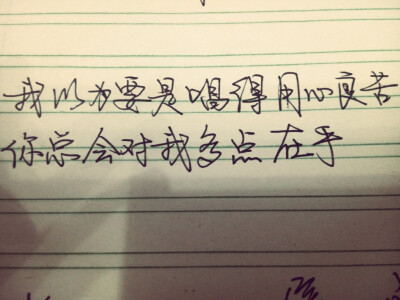 我以为要是唱得用心良苦
你总会对我多点在乎